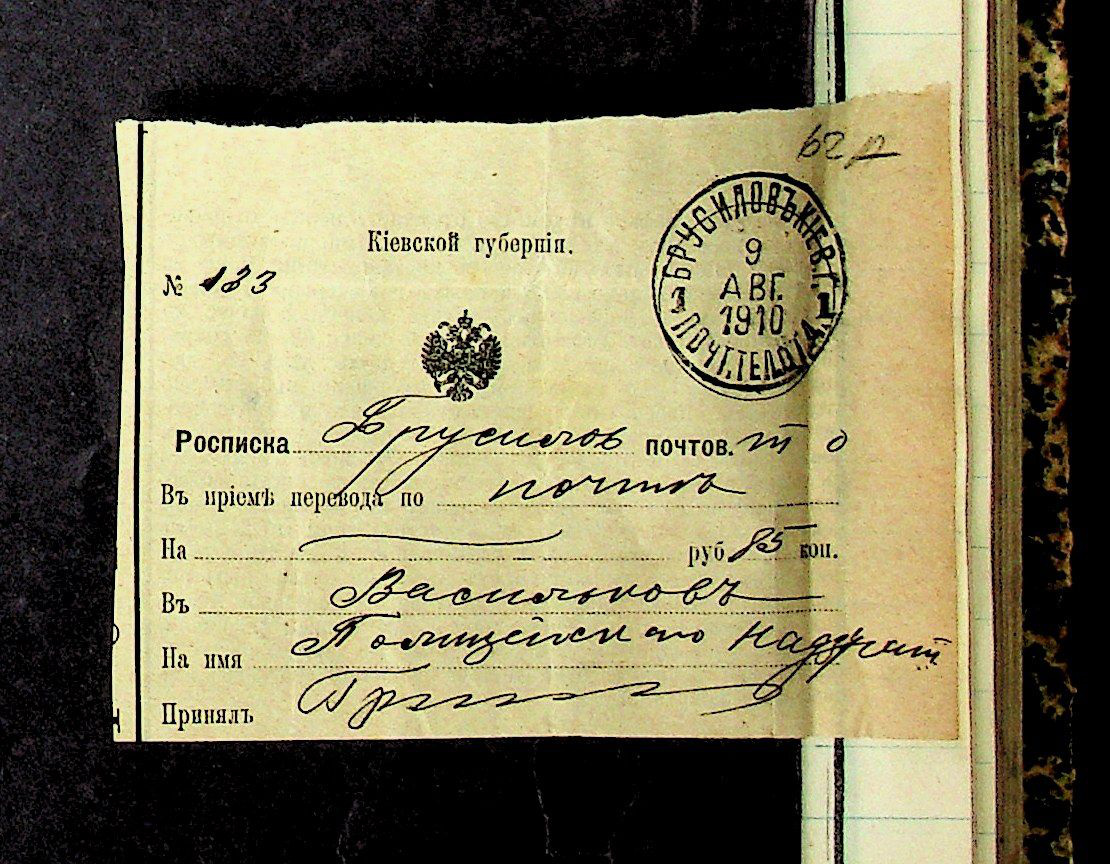 62
БРУСИЛОВЪ КІЕВ. Г.
9
АВГ.
1910
1 1
ПОЧТ. ТЕЛ. ОТД.
Кіевской губерніи.
№ 133
Росписка Брусилов почтов. т о
Въ пріемѣ перевода по почтѣ
На руб 85 коп.
Въ Васильковъ
На имя Полицейскаго Надзират
Принялъ